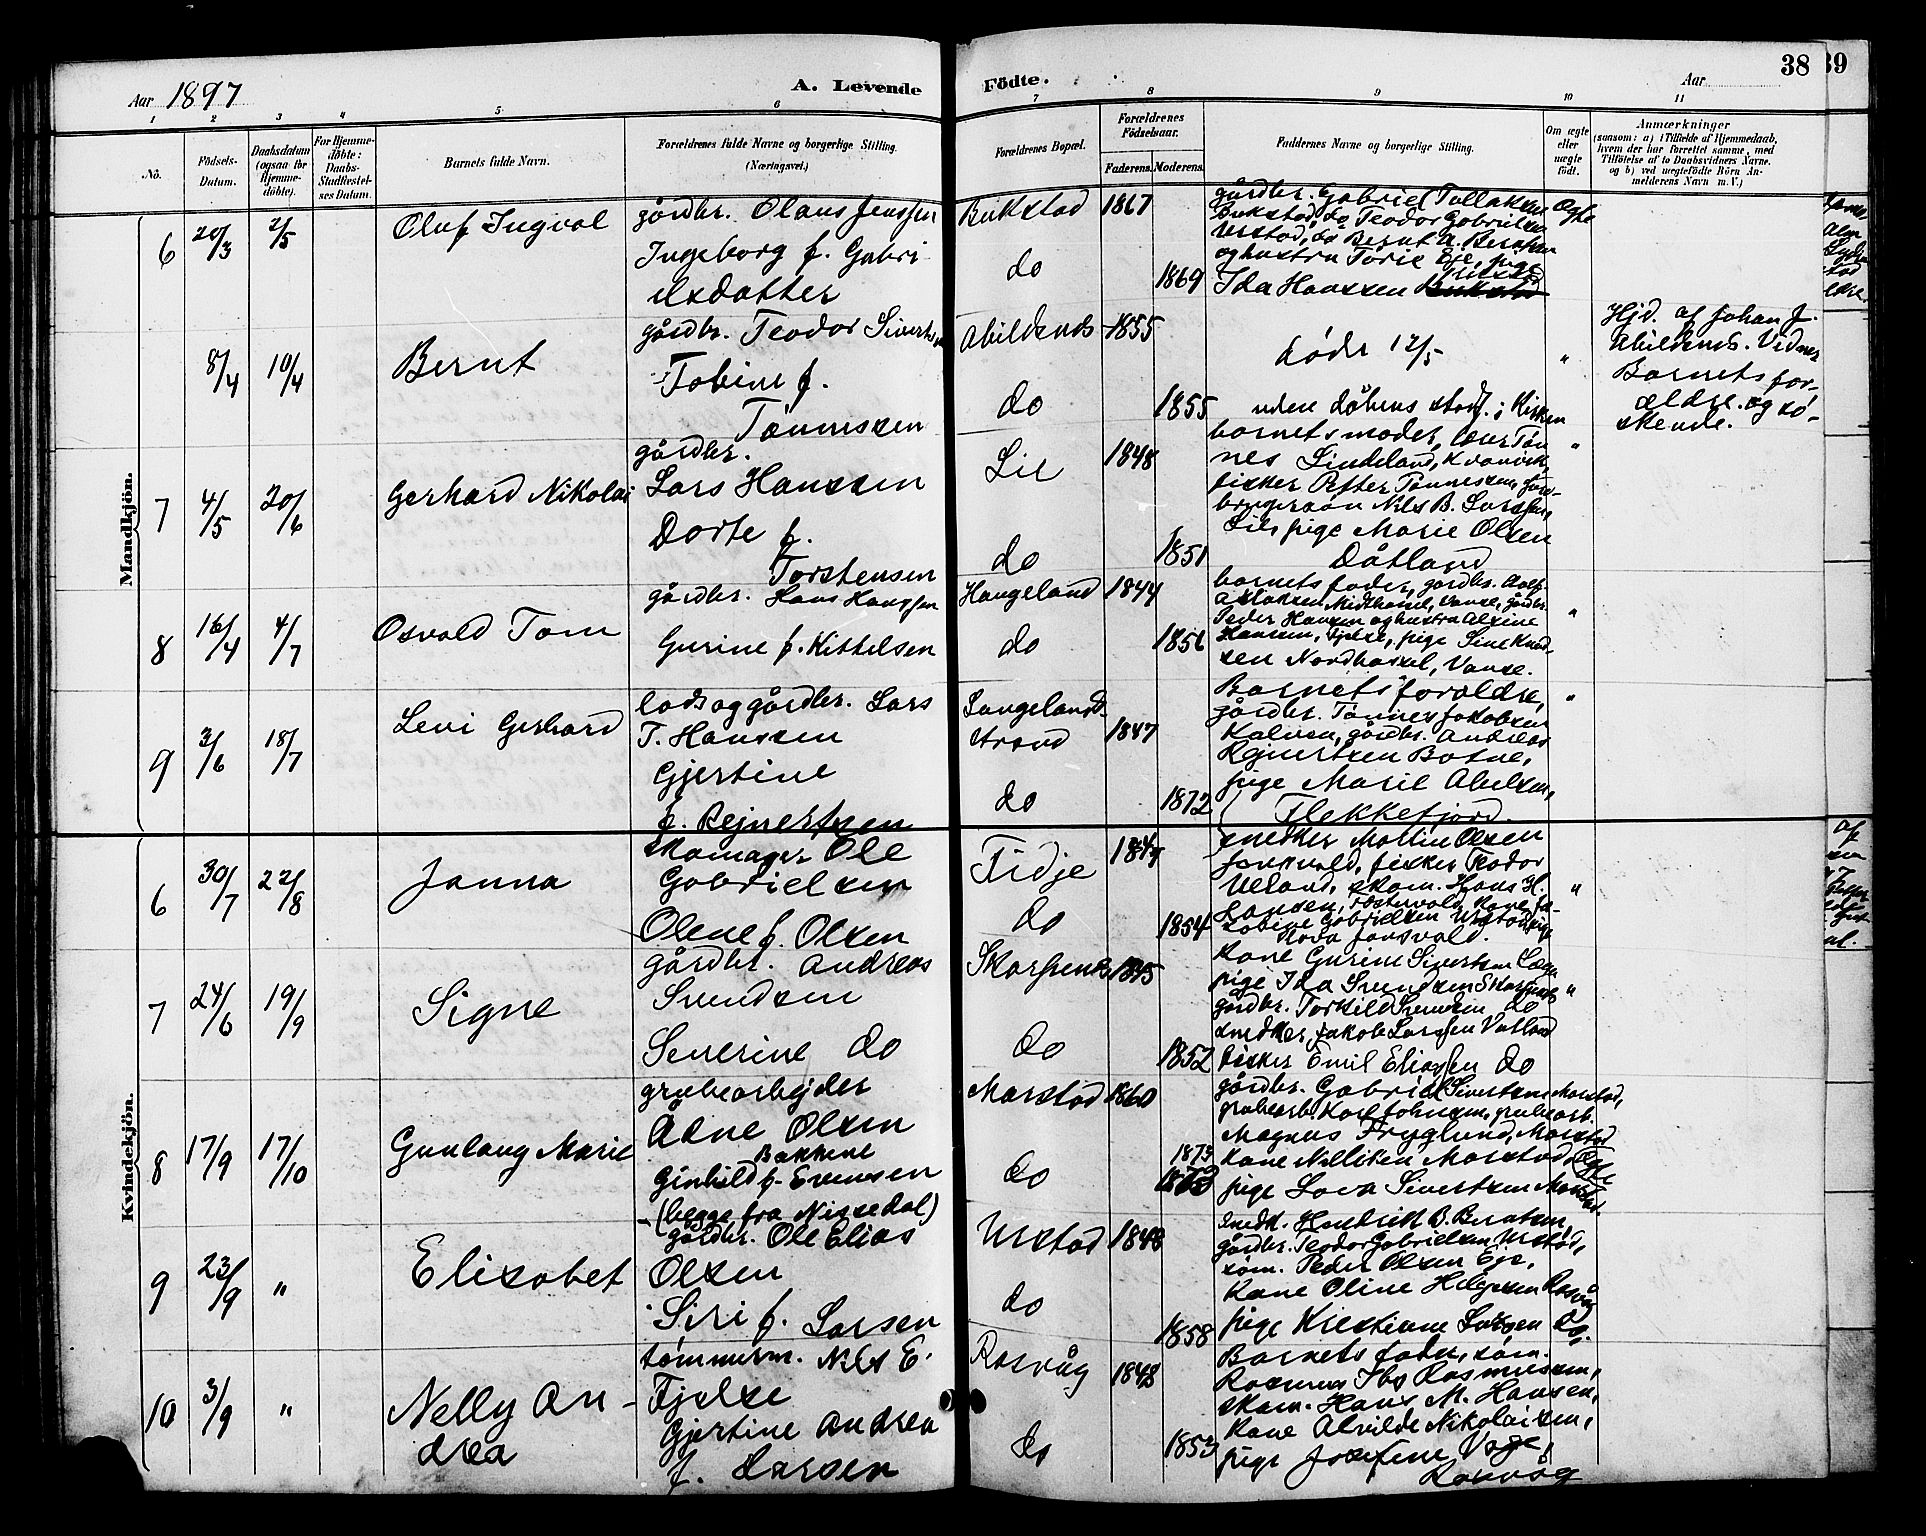 Aar 1897
A. Levende
Födte.
Aar
38
39
1
2
3
4
5
6
7
8
9
10
11
No.
Födsels-
Datum.
Daabsdatum
(ogsaa for
Hjemme-
döbte).
For Hjemme-
döbte:
Daabs-
Stadfæstel-
ses Datum.
Barnets fulde Navn.
Forældrenes fulde Navne og borgerlige Stilling.
(Næringsvei.)
Forældrenes Bopæl.
Forældrenes
Födselsaar.
Faderens. Moderens.
Faddernes Navne og borgerlige Stilling.
Om ægte
eller
uægte
født.
Anmærkninger
(saasom: a) i Tilfælde af Hjemmedaab,
hvem der har forrettet samme, med
Tilföielse af to Daabsvidners Navne.
og b) ved uegtefödte Börn An-
melderens Navn m. V.)
Mandkjön.
6 20/3 2/5 Oluf Ingval
gårdbr. Olaus Jenssen
Ingeborg f. Gabri-
elsdatter
Bukstad 1867
do 1869
gårdbr. Gabriel Tollaksen
Bukstad, do Teodor Gabrielsen
Urstad, do Bernt A. Berntsen
og hustru Torie Eje, pige
Ida Hanssen
Ægte
8/4 10/4 Bernt
gårdbr. Teodor Sivertsen
Tobine f.
Tønnessen
Abildsnes 1855
do 1855
døde 12/5
uden dåbens stadf. i Kirken
"
Hjd. af Johan J.
Abildsnes. Vidner
Barnets for-
ældre og sø-
skende.
7 4/5 20/6 Gerhard Nikolai
gårdbr.
Lars Hanssen
Dorte f.
Torstensen
Lie 1848
do 1851
barnets moder, Tøn-
nes Lindeland, Kvanvik,
fisker Petter Tønnessen, gård-
brugersøn Nils B. Larssen,
Lie, pige Marie Olsen
Dåtland
"
8 16/4 4/7 Osvald Tom
gårdbr. Hans Hanssen
Gurine f. Kittelsen
Haugeland 1844
do 1856
barnets fader, gårdbr. Adolf
Aslaksen Midthassel, Vanse, gårdbr.
Peder Hansen og hustru Alxine
Hansen, Fjelse, pige Sine Knud-
sen Nordhassel, Vanse.
"
9 3/6 18/7 Levi Gerhard
lods og gårdbr. Lars
T. Hanssen
Gjertine
f. Rejnertsen
Langelands-
strand 1847
do 1872
Barnets forældre,
gårdbr. Tønnes Jakobsen
Kalven, gårdbr. Andreas
Rejnertsen Botne,
pige Marie Abelsen,
Flekkefjord.
"
Kvindekjön.
6 30/7 22/8 Janna
skomager Ole
Gabrielsen
Olene f. Olsen
Fidje
do 1854
snedker Mattin Olsen
Jonsvold, fisker Teodor
Ueland, skom. Hans H.
Hansen, Kone
Gabrielsen Urstad, pige
Jonsvold.
"
7 24/6 19/9 Signe
gårdbr. Andreas
Svendsen
Severine do
Skarpenes 1845
do 1852
Kone Gurine Sivertsen
pige Ida Svendsen Skarpenes
gårdbr. Torkild Svendsen do
snedker Jakob Larssen Vatland
fisker Emil Eliassen do
"
8 17/9 17/10 Gunlaug Marie
grubearbejder
Ådne Olsen
Bakkene
Ginhild f. Evensen
(begge fra Nissedal)
Marstad 1860
do 1873
gårdbr. Gabriel Sivertsen Marstad,
grubearb. Karl Johnsen, grubearb.
Magnus Fryglund, Marstad
Kone Nilliken Marstad
pige Lova Sivertsen
9 23/9 " Elisabet
gårdbr. Ole Elias
Olsen
Siri f. Larsen
Urstad 1848
do 1858
snedk. Hendrik B. Berntsen,
gårdbr. Teodor Gabrielsen Urstad,
søm. Peder Olsen Eje,
Kone Oline Helgesen Rasvåg
pige Kristiane Larsen do.
10 3/9 " Nelly An-
drea
tømmerm. Nils E.
Fjelse
Gjertine Andrea
f. Larsen
Rasvåg 1848
do 1853
Barnets fader, søm.
Rasmus Ibs Rasmussen,
skom. Hans M. Hansen,
Kone Alvilde Nikolaisen,
pige Josefine Vage,
Rasvåg